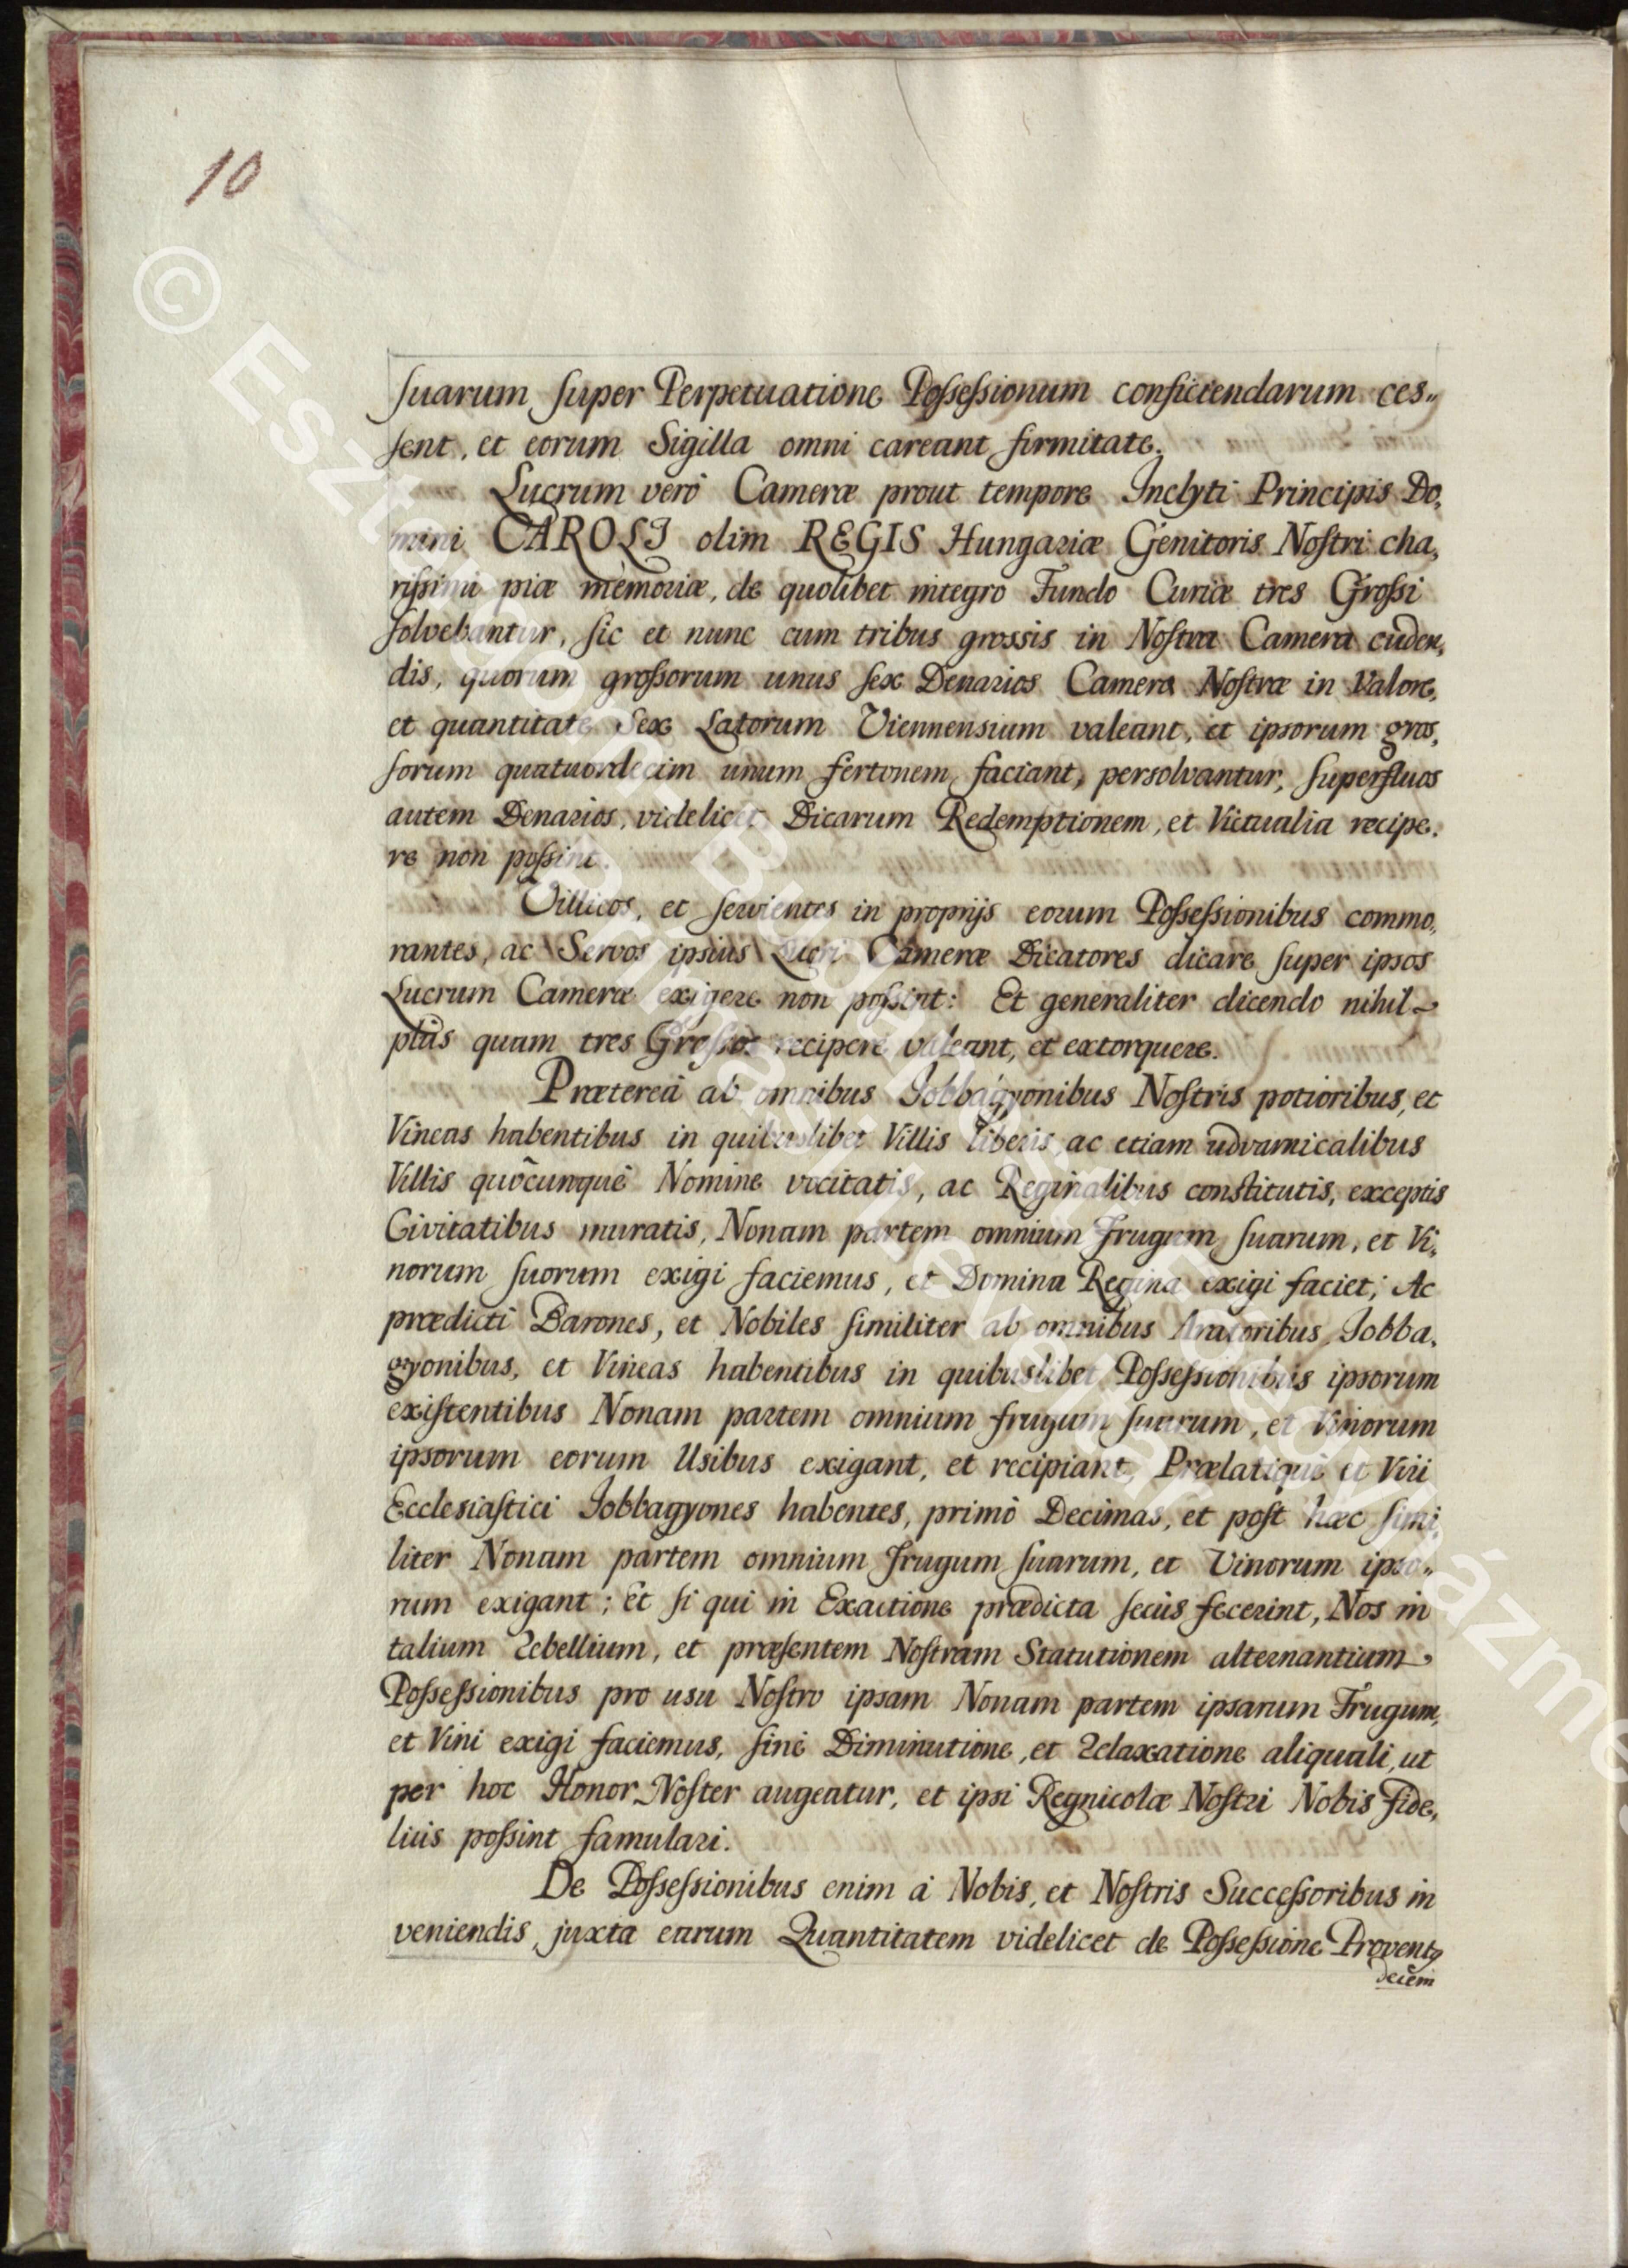 10
suarum super Perpetuatione Possessionum conficiendarum ces„
sent, et eorum Sigilla omni careant firmitate.
Lucrum verò Cameræ prout tempore Inclyti Principis Do,
mini CAROLI olim REGIS Hungariæ Genitoris Nostri cha,
rissimi piæ memoriæ, de quolibet integro Fundo Curiæ tres Grossi
solvebantur, sic et nunc cum tribus grossis in Nostra Camera cuden,
dis, quorum grossorum unus sex Denarios Camera Nostræ in Valore,
et quantitate Sex Latorum Viennensium valeant, et ipsorum gros,
sorum quatuordecim unum fertonem faciant, persolvantur, superfluos
autem Denarios, videlicet Dicarum Redemptionem, et Victualia recipe,
re non possint.
Villicos, et servientes in proprijs eorum Possessionibus commo,
rantes, ac Servos ipsius Lucri Cameræ Dicatores dicare super ipsos
Lucrum Cameræ exigere non possint: Et generaliter dicendo nihil
plùs quam tres Grossos recipere valeant, et extorquere.
Prætereà ab omnibus Jobbagyonibus Nostris potioribus, et
Vineas habentibus in quibuslibet Villis liberis, ac etiam udvarnicalibus
Villis quôcunquè Nomine vocitatis, ac Reginalibus constitutis, exceptis
Civitatibus muratis, Nonam partem omnium Frugum suarum, et Vi,
norum suorum exigi faciemus, et Domina Regina exigi faciet; Ac
prædicti Barones, et Nobiles similiter ab omnibus Aratoribus Jobba,
gyonibus, et Vineas habentibus in quibuslibet Possessionibus ipsorum
existentibus Nonam partem omnium frugum suarum, et Vinorum
ipsorum eorum Usibus exigant, et recipiant, Prælatiquè et Viri
Ecclesiastici Jobbagyones habentes, primò Decimas, et post hæc simi,
liter Nonam partem omnium Frugum suarum, et Vinorum ipso„
rum exigant; et si qui in Exactione prædicta secùs fecerint, Nos in
talium Rebellium, et præsentem Nostram Statutionem alternantium
Possessionibus pro usu Nostro ipsam Nonam partem ipsarum Frugum,
et Vini exigi faciemus, sinè Diminutione, et Relaxatione aliquali, ut
per hoc Honor Noster augeatur, et ipsi Regnicolæ Nostri Nobis fide,
liùs possint famulari.
De Possessionibus enim à Nobis, et Nostris Successoribus in
veniendis, juxta earum Quantitatem videlicet de Possessione Provent9
decem